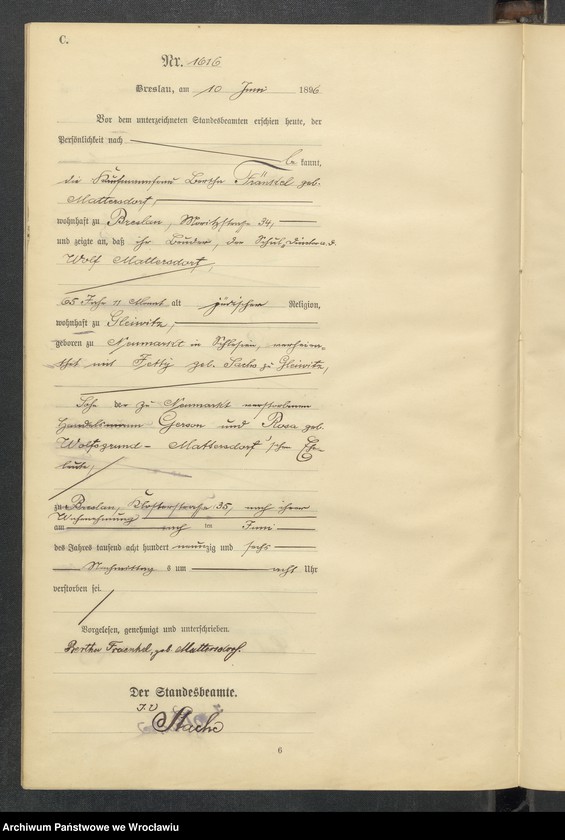 C.
Nr. 1616
Breslau, am 10 Juni 1896
Vor dem unterzeichneten Standesbeamten erschien heute, der
Persönlichkeit nach
be kannt,
die Kaufmannsfrau Bertha Fränkel geb.
Mattersdorf,
wohnhaft zu Breslau, Moritzstraße 34,
und zeigte an, daß ihr Bruder, der Schul-Director a. D.
Wolf Mattersdorf,
65 Jahre 11 Monat alt jüdischer Religion,
wohnhaft zu Gleiwitz,
geboren zu Neumarkt in Schlesien, verheira-
thet mit geb. Sachs zu Gleiwitz,
Sohn der zu Neumarkt verstorbenen
Handelsmann Gerson und Rosa geb.
Wolfsgrund - Mattersdorf'schen Ehe-
leute,
zu Breslau, Klosterstraße 35, nach ihrer
Wahrnehmung
am ten Juni
des Jahres tausend acht hundert neunzig und sechs
Nachmittag s um acht Uhr
verstorben sei.
Vorgelesen, genehmigt und unterschrieben.
Bertha Fraenkel, geb. Mattersdorf.
Der Standesbeamte.
J. V.
Stache
6
Archiwum Państwowe we Wrocławiu